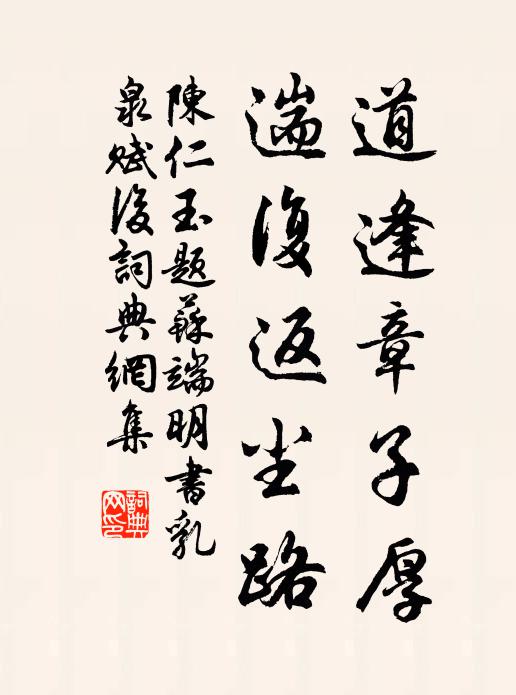 道逢章子厚
遄復返尘路
陳仁玉題蘇端明書乳
泉賦後詞典網集
詞典网印